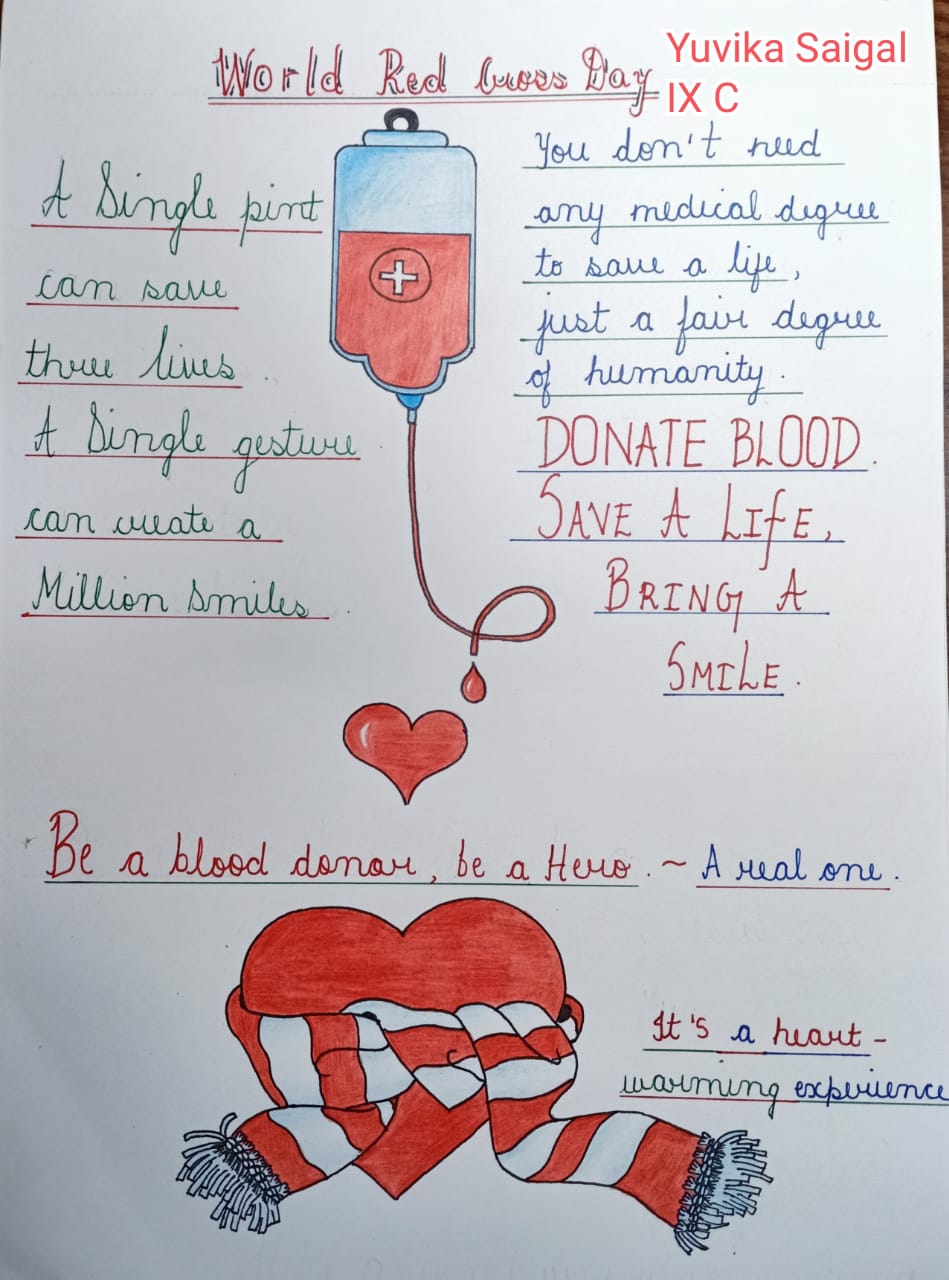 World Red Cross Day
Yuvika Saigal
IX C
A Single pint
can save
three lives.
A Single gesture
can create a
Million Smiles.
You don't need
any medical degree
to save a life,
just a fair degree
of humanity.
DONATE BLOOD.
SAVE A LIfE,
BRING A
SMILE.
Be a blood donar, be a Hero. ~ A real one.
It's a heart-
warming experience